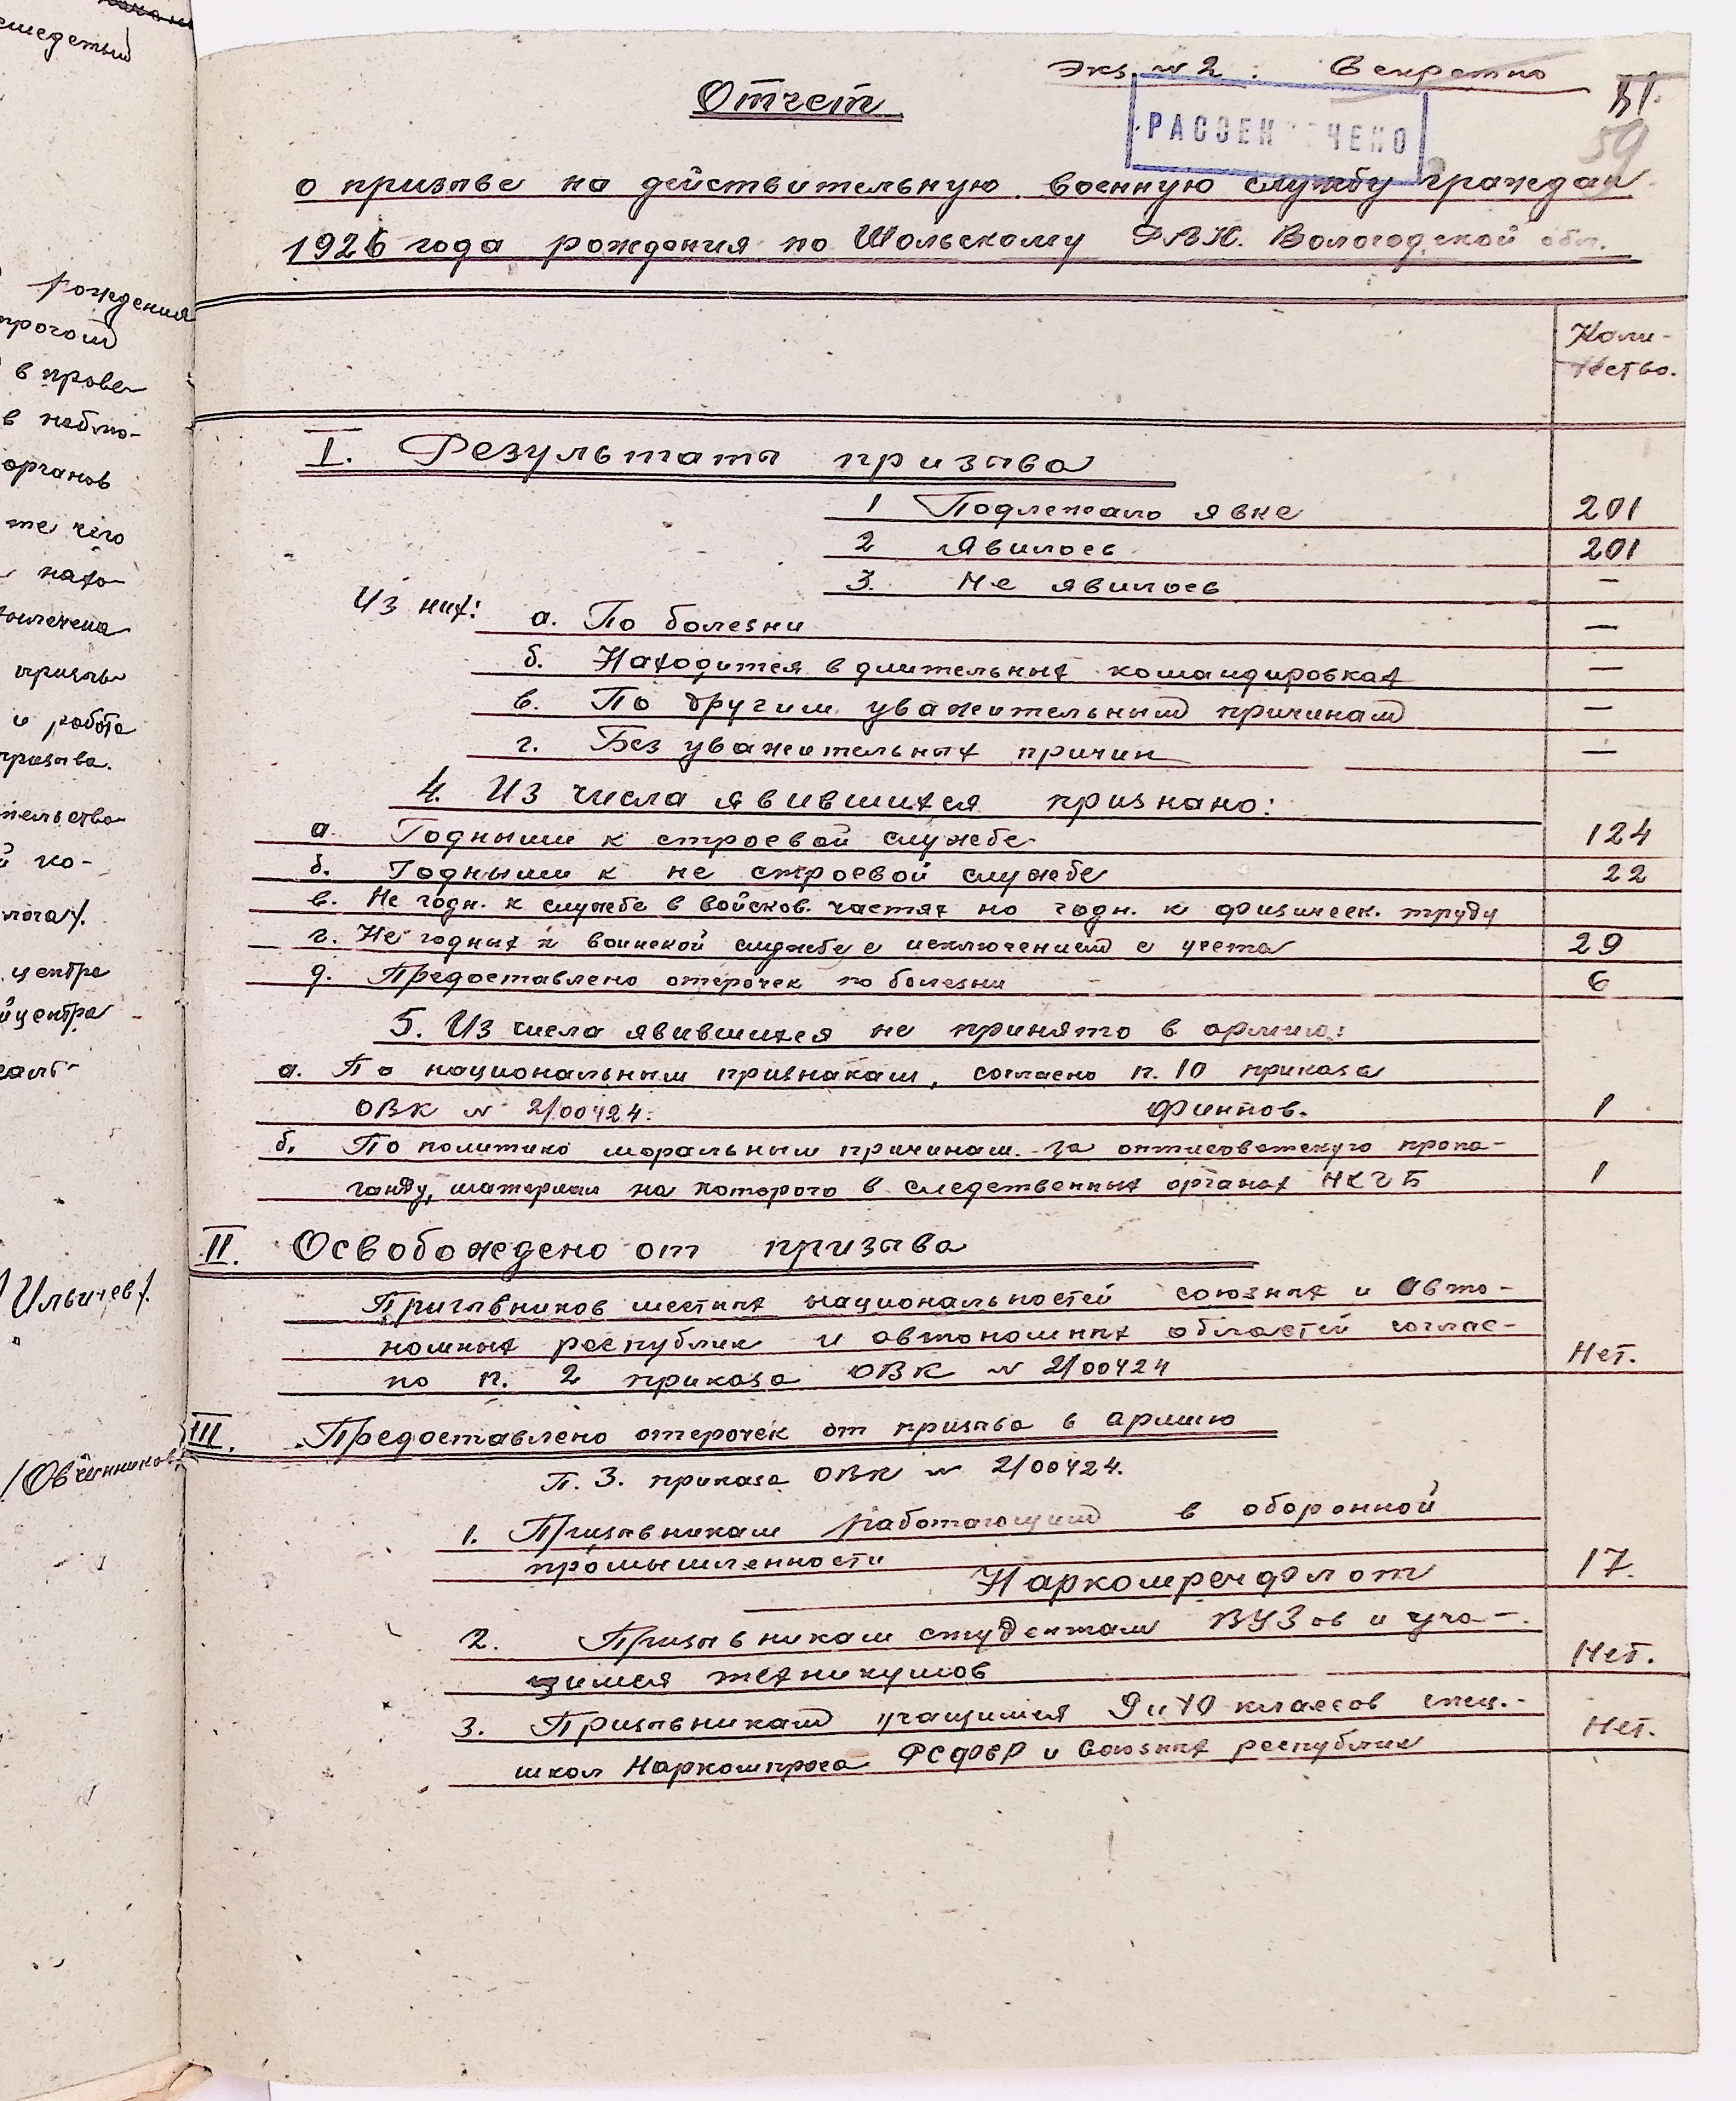 Экз. № 2. Секретно
Отчет
РАССЕК ЧЕНО
59
о призыве на действительную военную службу граждан
1926 года рождения по Шольскому РВК. Вологодской обл.
Коли-
чество.
I. Результаты призыва
1 Подлежало явке 201
2 Явилось 201
3. Не явилось —
Из них: а. По болезни —
б. Находится в длительных командировках —
в. По другим уважительным причинам —
г. Без уважительных причин —
4. Из числа явившихся признано:
а. Годными к строевой службе 124
б. Годными к не строевой службе 22
в. Не годн. к службе в войсков. частях но годн. к физическ. труду
г. Не годных к воинской службе с исключением с учета 29
д. Предоставлено отсрочек по болезни 6
5. Из числа явившихся не принято в армию:
а. По национальным признакам, согласно п. 10 приказа
ОВК № 2/00424. Финнов. 1
б. По политико моральным причинам. За антисоветскую пропа-
ганду, материал на которого в следственных органах НКГБ 1
II. Освобождено от призыва
Призывников местных национальностей союзных и авто-
номных республик и автономных областей соглас-
но п. 2 приказа ОВК № 2/00424 Нет.
III. Предоставлено отсрочек от призыва в армию
П. 3. приказа ОВК № 2/00424.
1. Призывникам работающим в оборонной
промышленности
Наркомречфлот 17.
2. Призывникам студентам ВУЗов и уча-
щимся техникумов Нет.
3. Призывникам учащимся 9 и 10 классов спец.-
школ Наркомпроса РСФСР и Союзных республик Нет.
рождения
в прове
органов
же чего
и работе
призыва.
центре
йцентра
/Ильичев/.
/Овчинников/